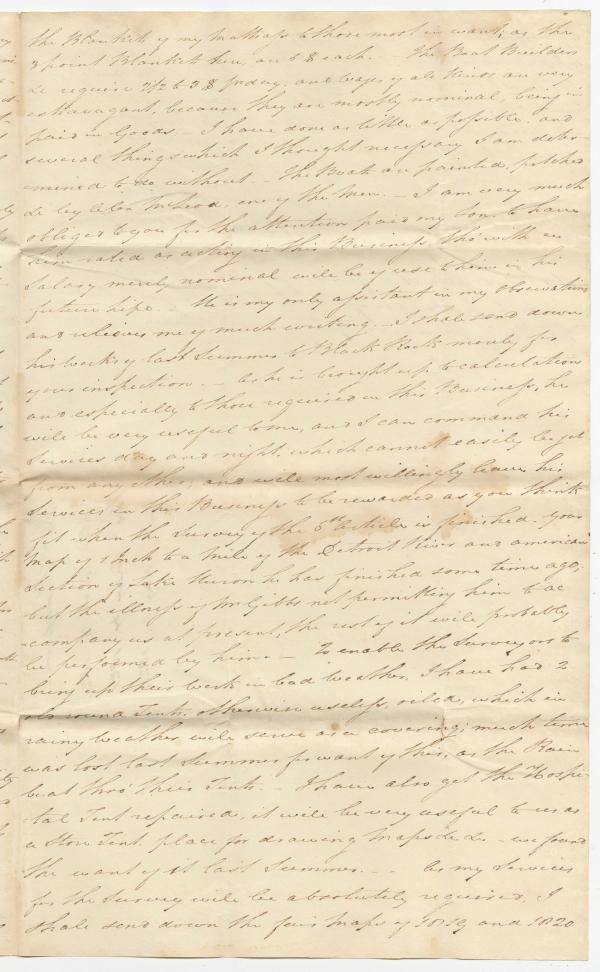 the Blankets of my Mattrass to those most in want; as the
3 point Blankets here, are 6 $ each. - The Boat Builders
&c require 2 1/2 to 3 $ pr day, and wages of all kinds are very
extravagant, because they are mostly nominal, being in
paid in Goods. - I have done as little as possible, and
several things which I thought necessary I am deter-
mined to do without - The Boats are painted, pitched
&c by Alexr McLeod, one of the Men. - I am very much
obliged to you for the attention paid my Son, to have
him rated as acting in this Business, tho' with a
Salary merely nominal will be of use to him in his
future life. - He is my only assistant in my Observations
and relieves me of much writing. - I shall send down
his works of last Summer to Black Rock merely for
your inspection. - As he is brought up to calculation
and especially to those required in this Business, he
will be very useful to me, and I can command his
Services day and night, which cannot easily be got
from any other, and will most willingly leave his
Services in this Business to be rewarded as you think
fit when the Survey of the 6th Article is finished. Your
Map of 1 Inch to a Mile of the Detroit River and american
Section of Lake Huron he has finished some time ago,
but the illness of Mr Gibbs not permitting him to ac
-company us at present, the rest of it will probably
be performed by him. - To enable the Surveyors to
bring up their work in bad weather, I have had 2
old round Tents, otherwise useless, oiled, which in
rainy weather will serve as a covering; much time
was lost last Summer for want of this, as the Rain
beat thro' their Tents. - I have also got the Hospi-
tal Tent repaired, it will be very useful to us as
a Store Tent, place for drawing Maps &c &c - we found
the want of it last Summer. - - As my Services
for the Survey will be absolutely required, I
shall send down the fair Maps of 1819 and 1820